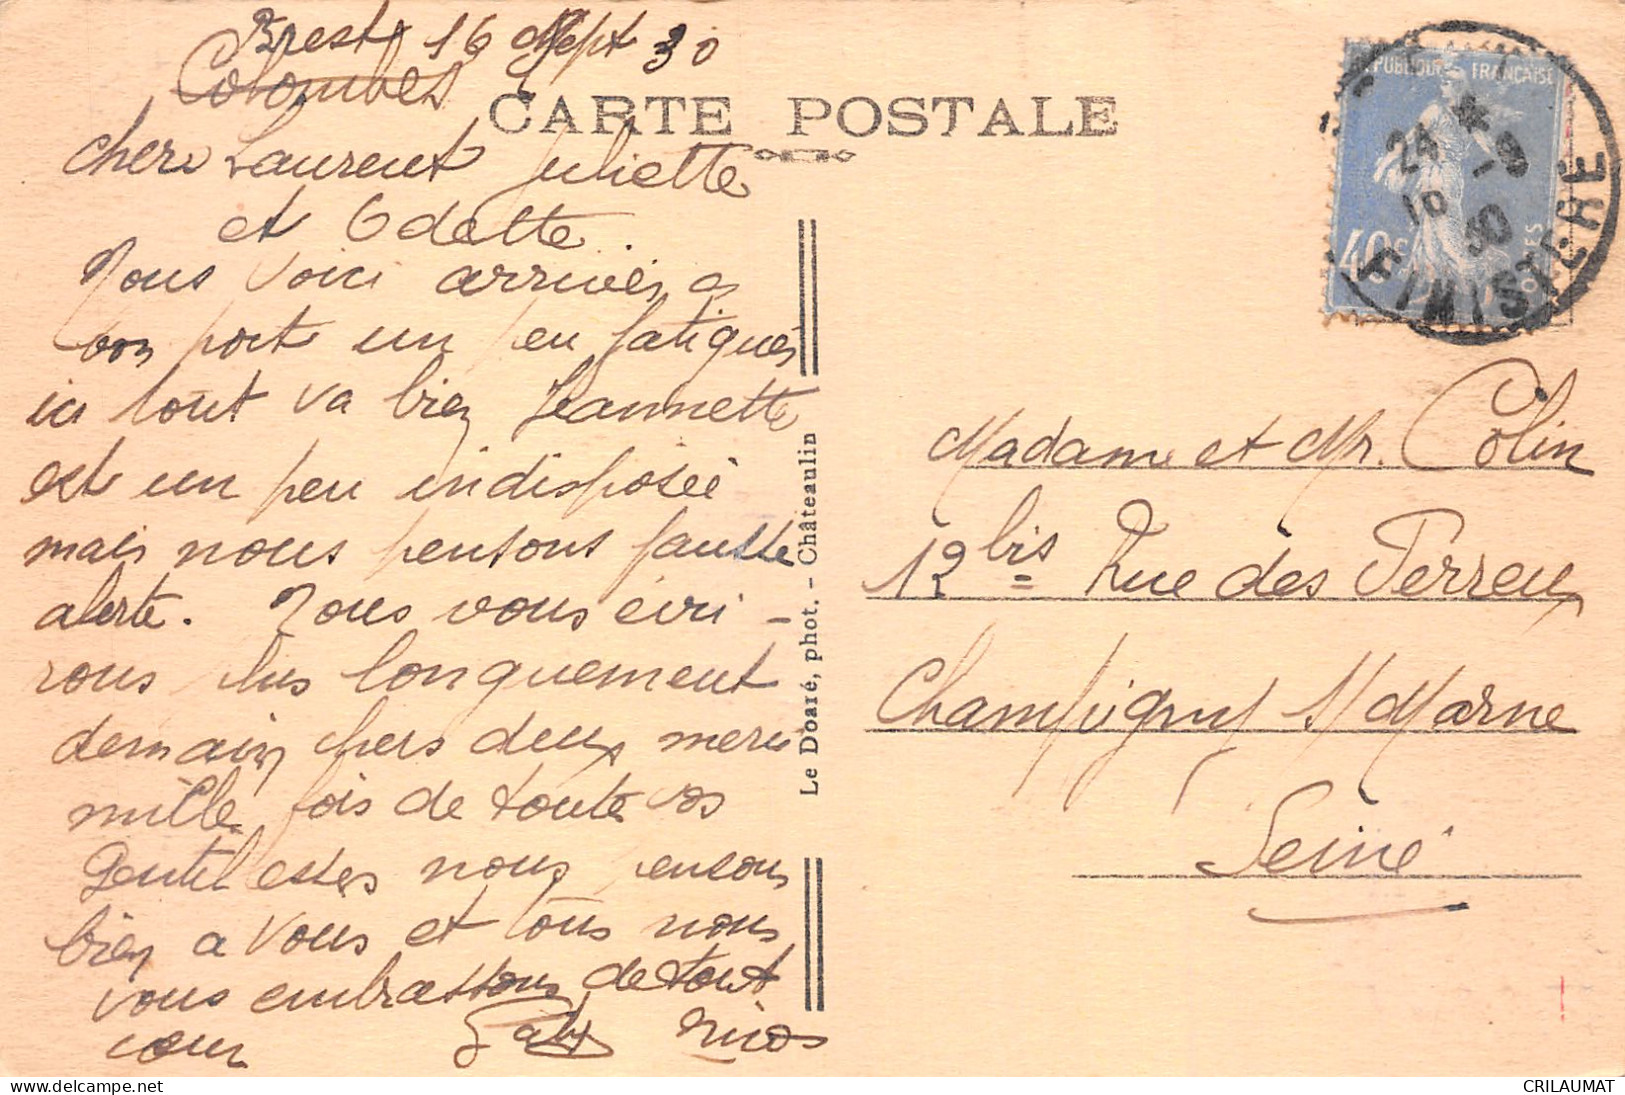 Brest 16 Sept 30
Colombes
CARTE POSTALE
chers Laurent Juliette
et Odette.
Nous voici arrivés a
bon port un peu fatigués
ici tout va bien Jeannette
est un peu indisposée
mais nous pensons fausse
alerte. Nous vous écri-
rons plus longuement
demain chers deux merci
mille fois de toute vos
gentillesses nous pensons
bien a vous et tous nous
vous embrassons de tout
cœur Gaby Ninos
Le Doaré, phot. - Châteaulin
REPUBLIQUE FRANÇAISE
40c
POSTES
24 -9
16 30
FINISTERE
Madame et Mr. Colin
12 bis Rue des Perreux
Champigny s/ Marne
Seine
CRILAUMAT